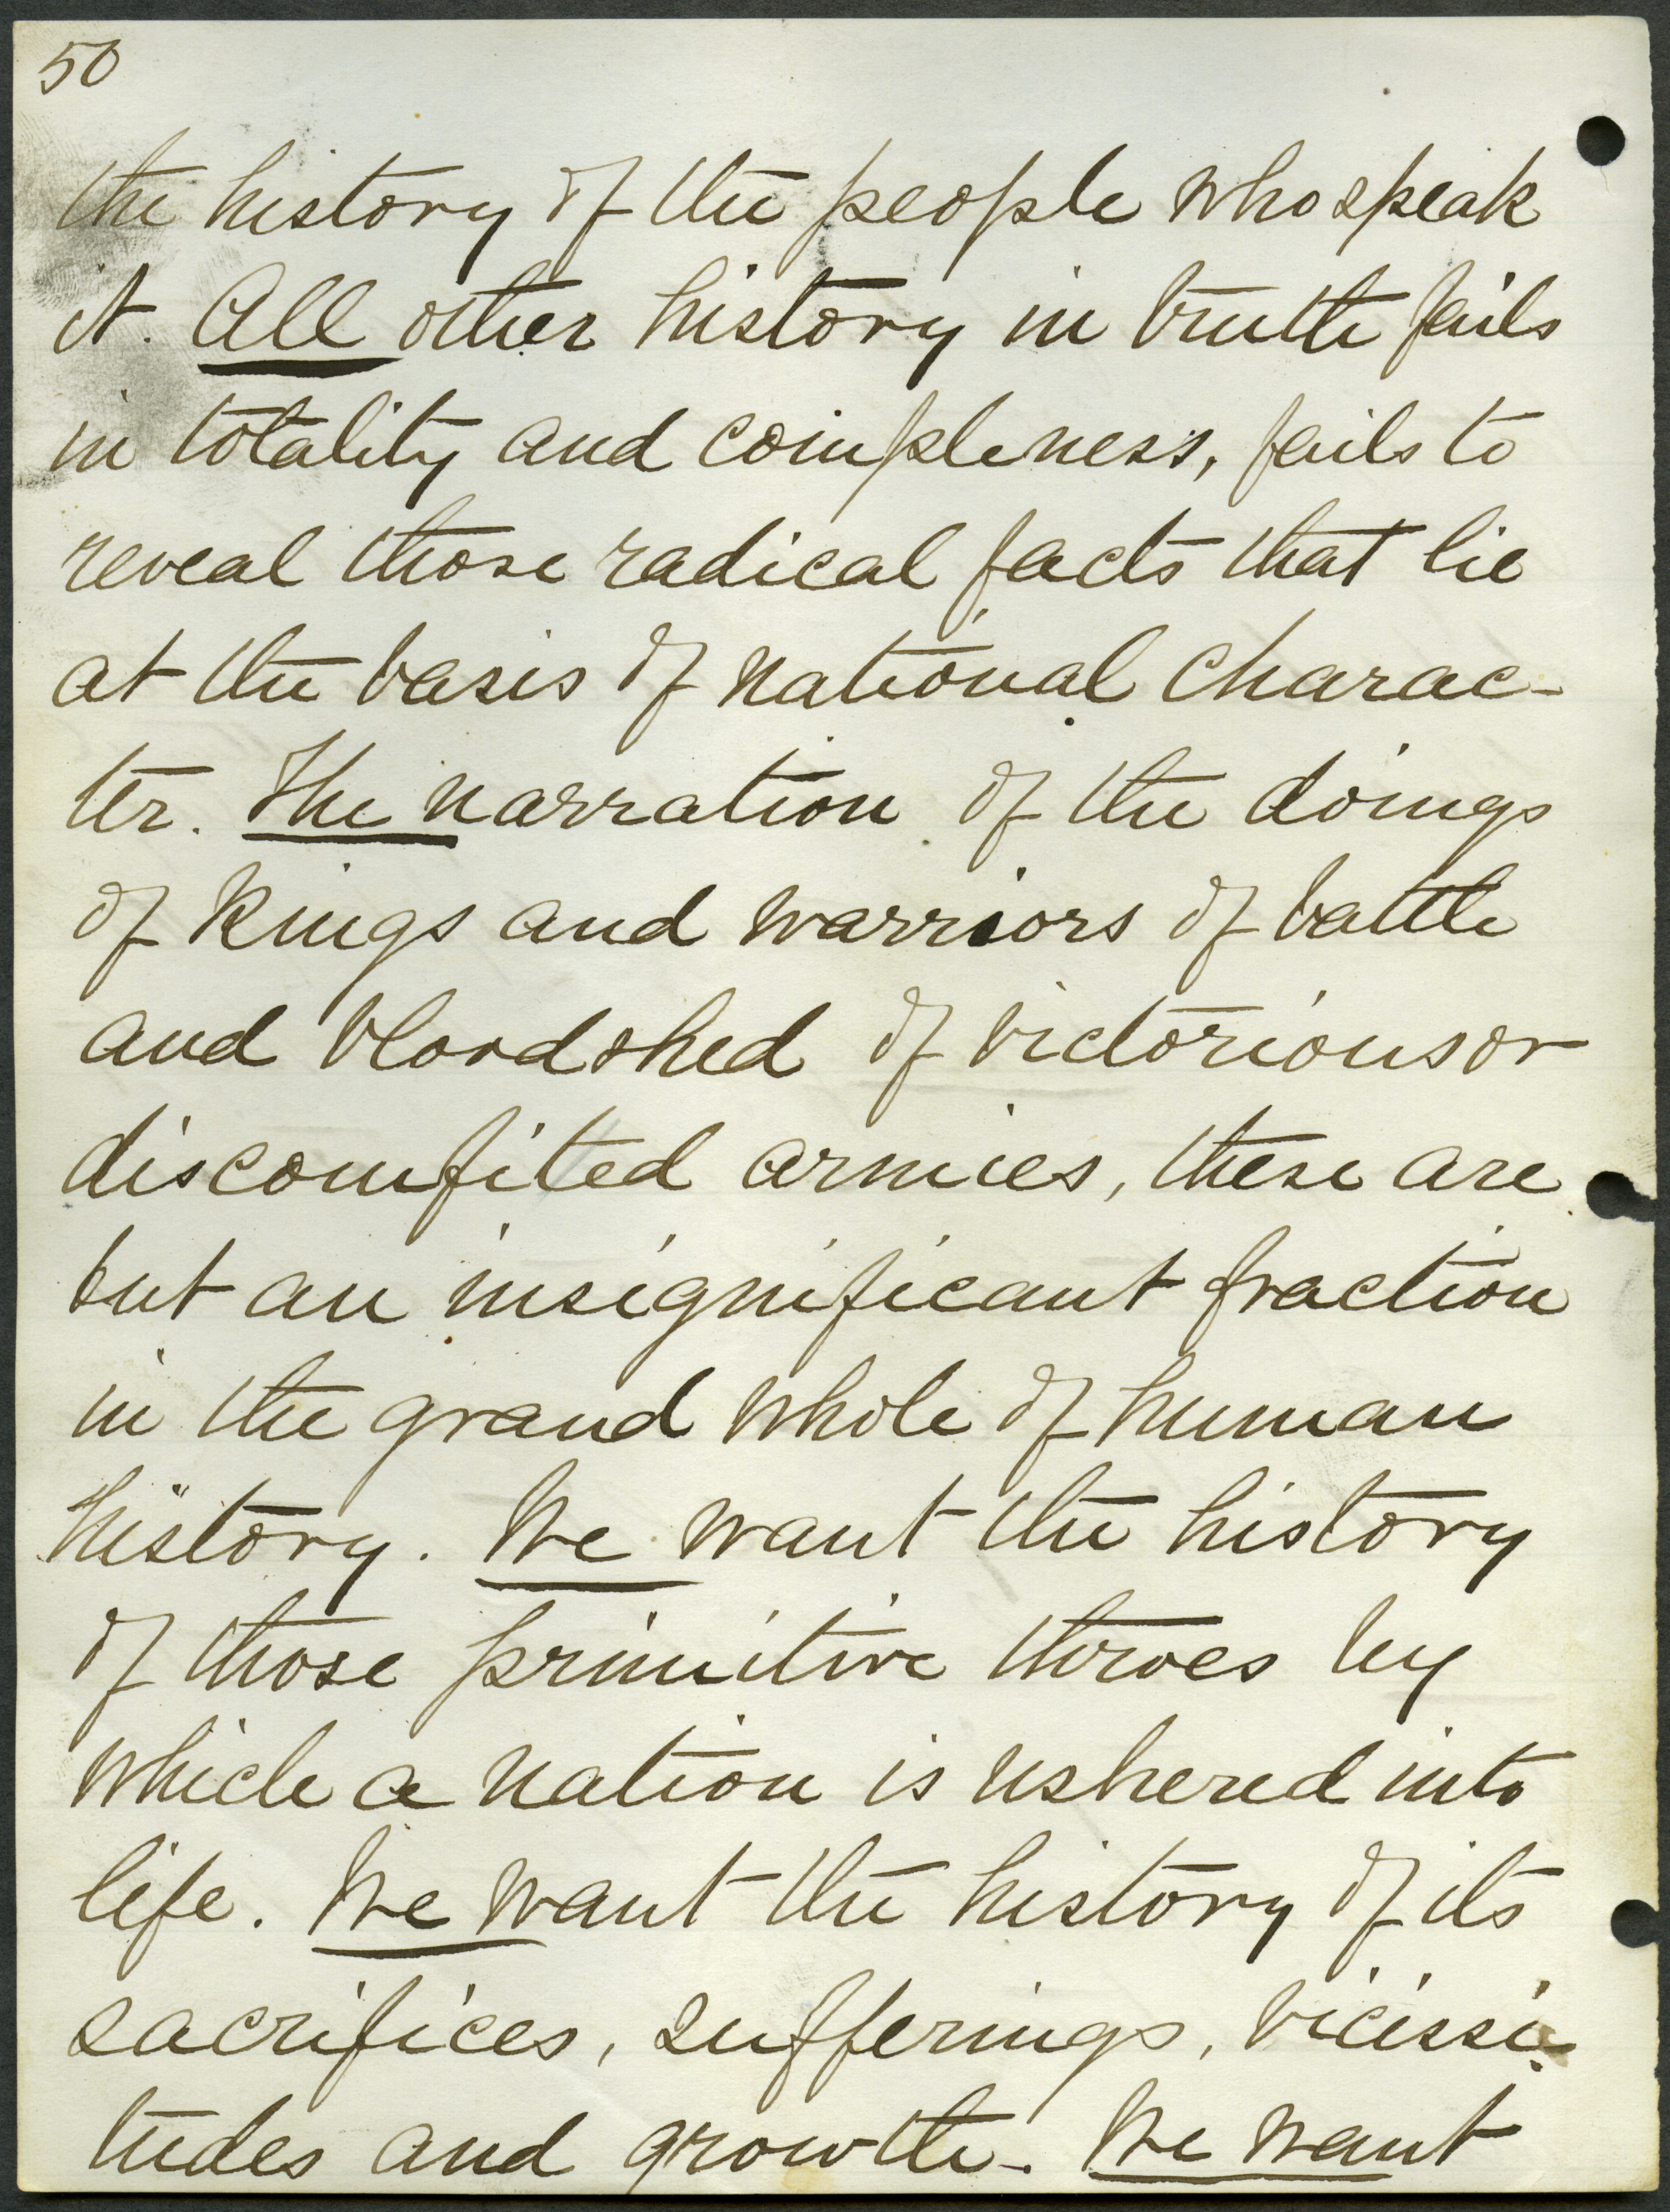 50
the history of the people who speak
it. All other history in truth fails
in totality and compleness, fails to
reveal those radical facts that lie
at the basis of national charac-
ter. The narration of the doings
of kings and warriors of battle
and bloodshed of victorious or
discomfited armies, these are
but an insignificant fraction
in the grand whole of human
history. We want the history
of those primitive throes by
which a nation is ushered into
life. We want the history of its
sacrifices, sufferings, vicissi-
tudes and growth. We want